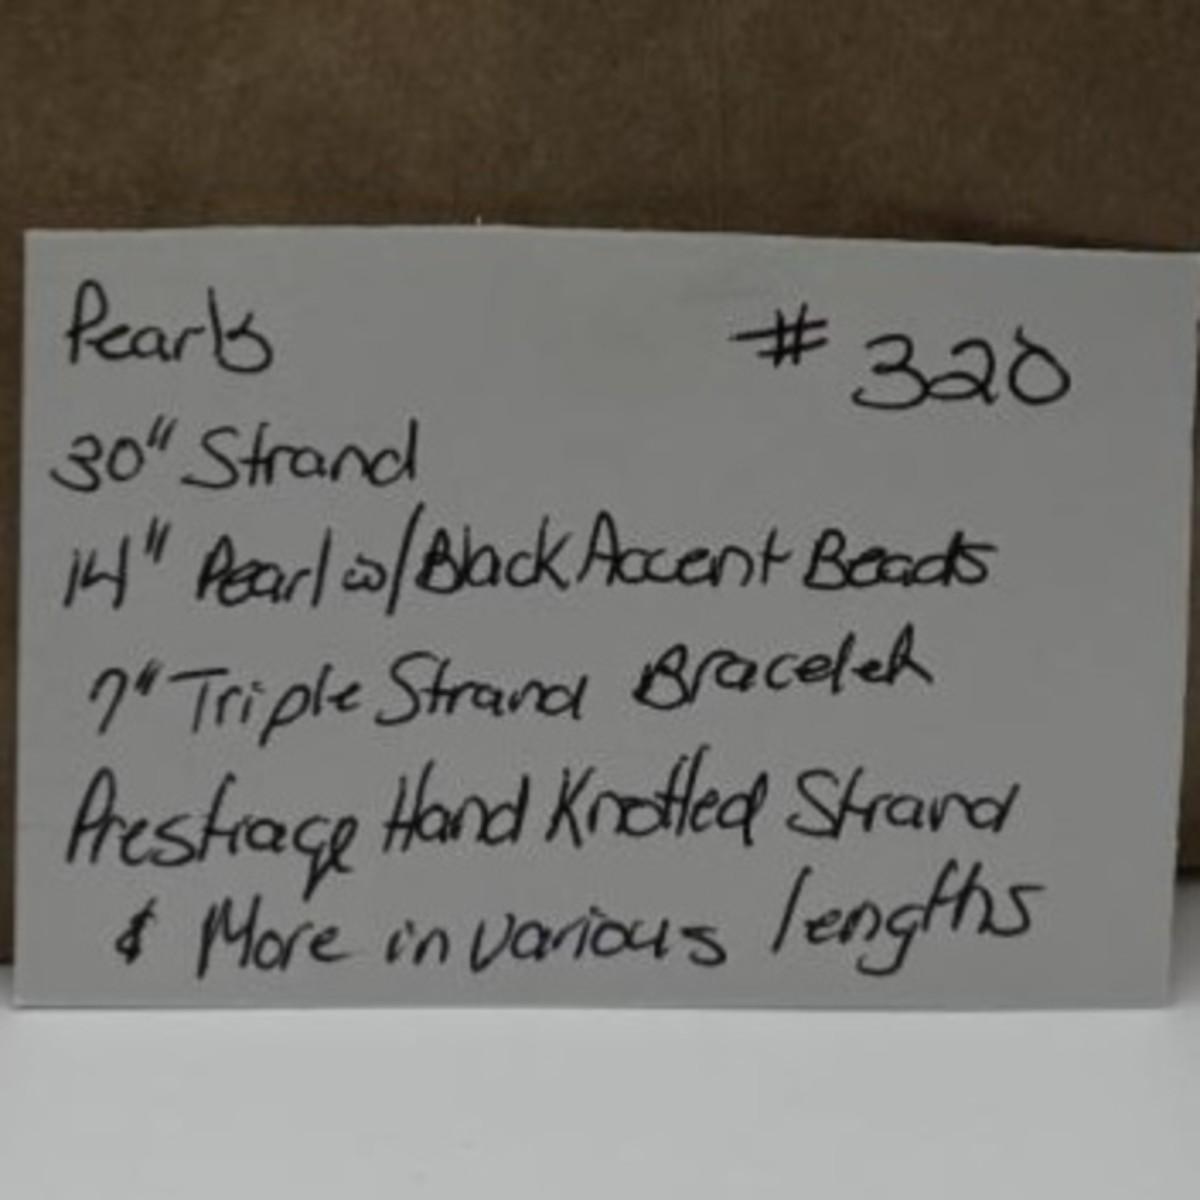 Pearls
#320
30" Strand
14" Pearl w/Black Accent Beads
7" Triple Strand Bracelet
Prestiage Hand Knotted Strand
& More in various lengths